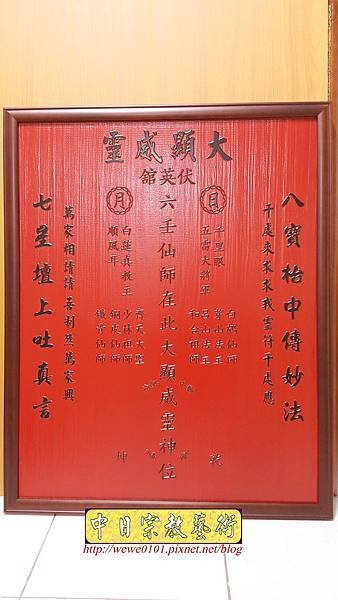 大顯威靈
伏英舘
八寶枱中傳妙法
千處來求求我靈符千處應
日
月
千里眼
五雷大將軍
白鶴仙師
茅山法主
呂山法主
和合祖師
六壬仙師在此大顯威靈神位
白蓮真教主
順風耳
齊天大聖
少林祖師
銅皮仙師
鐵骨仙師
乾
坤
萬家相請請吾利益萬家興
七星壇上吐真言
中日宗教藝術
http://wewe0101.pixnet.net/blog